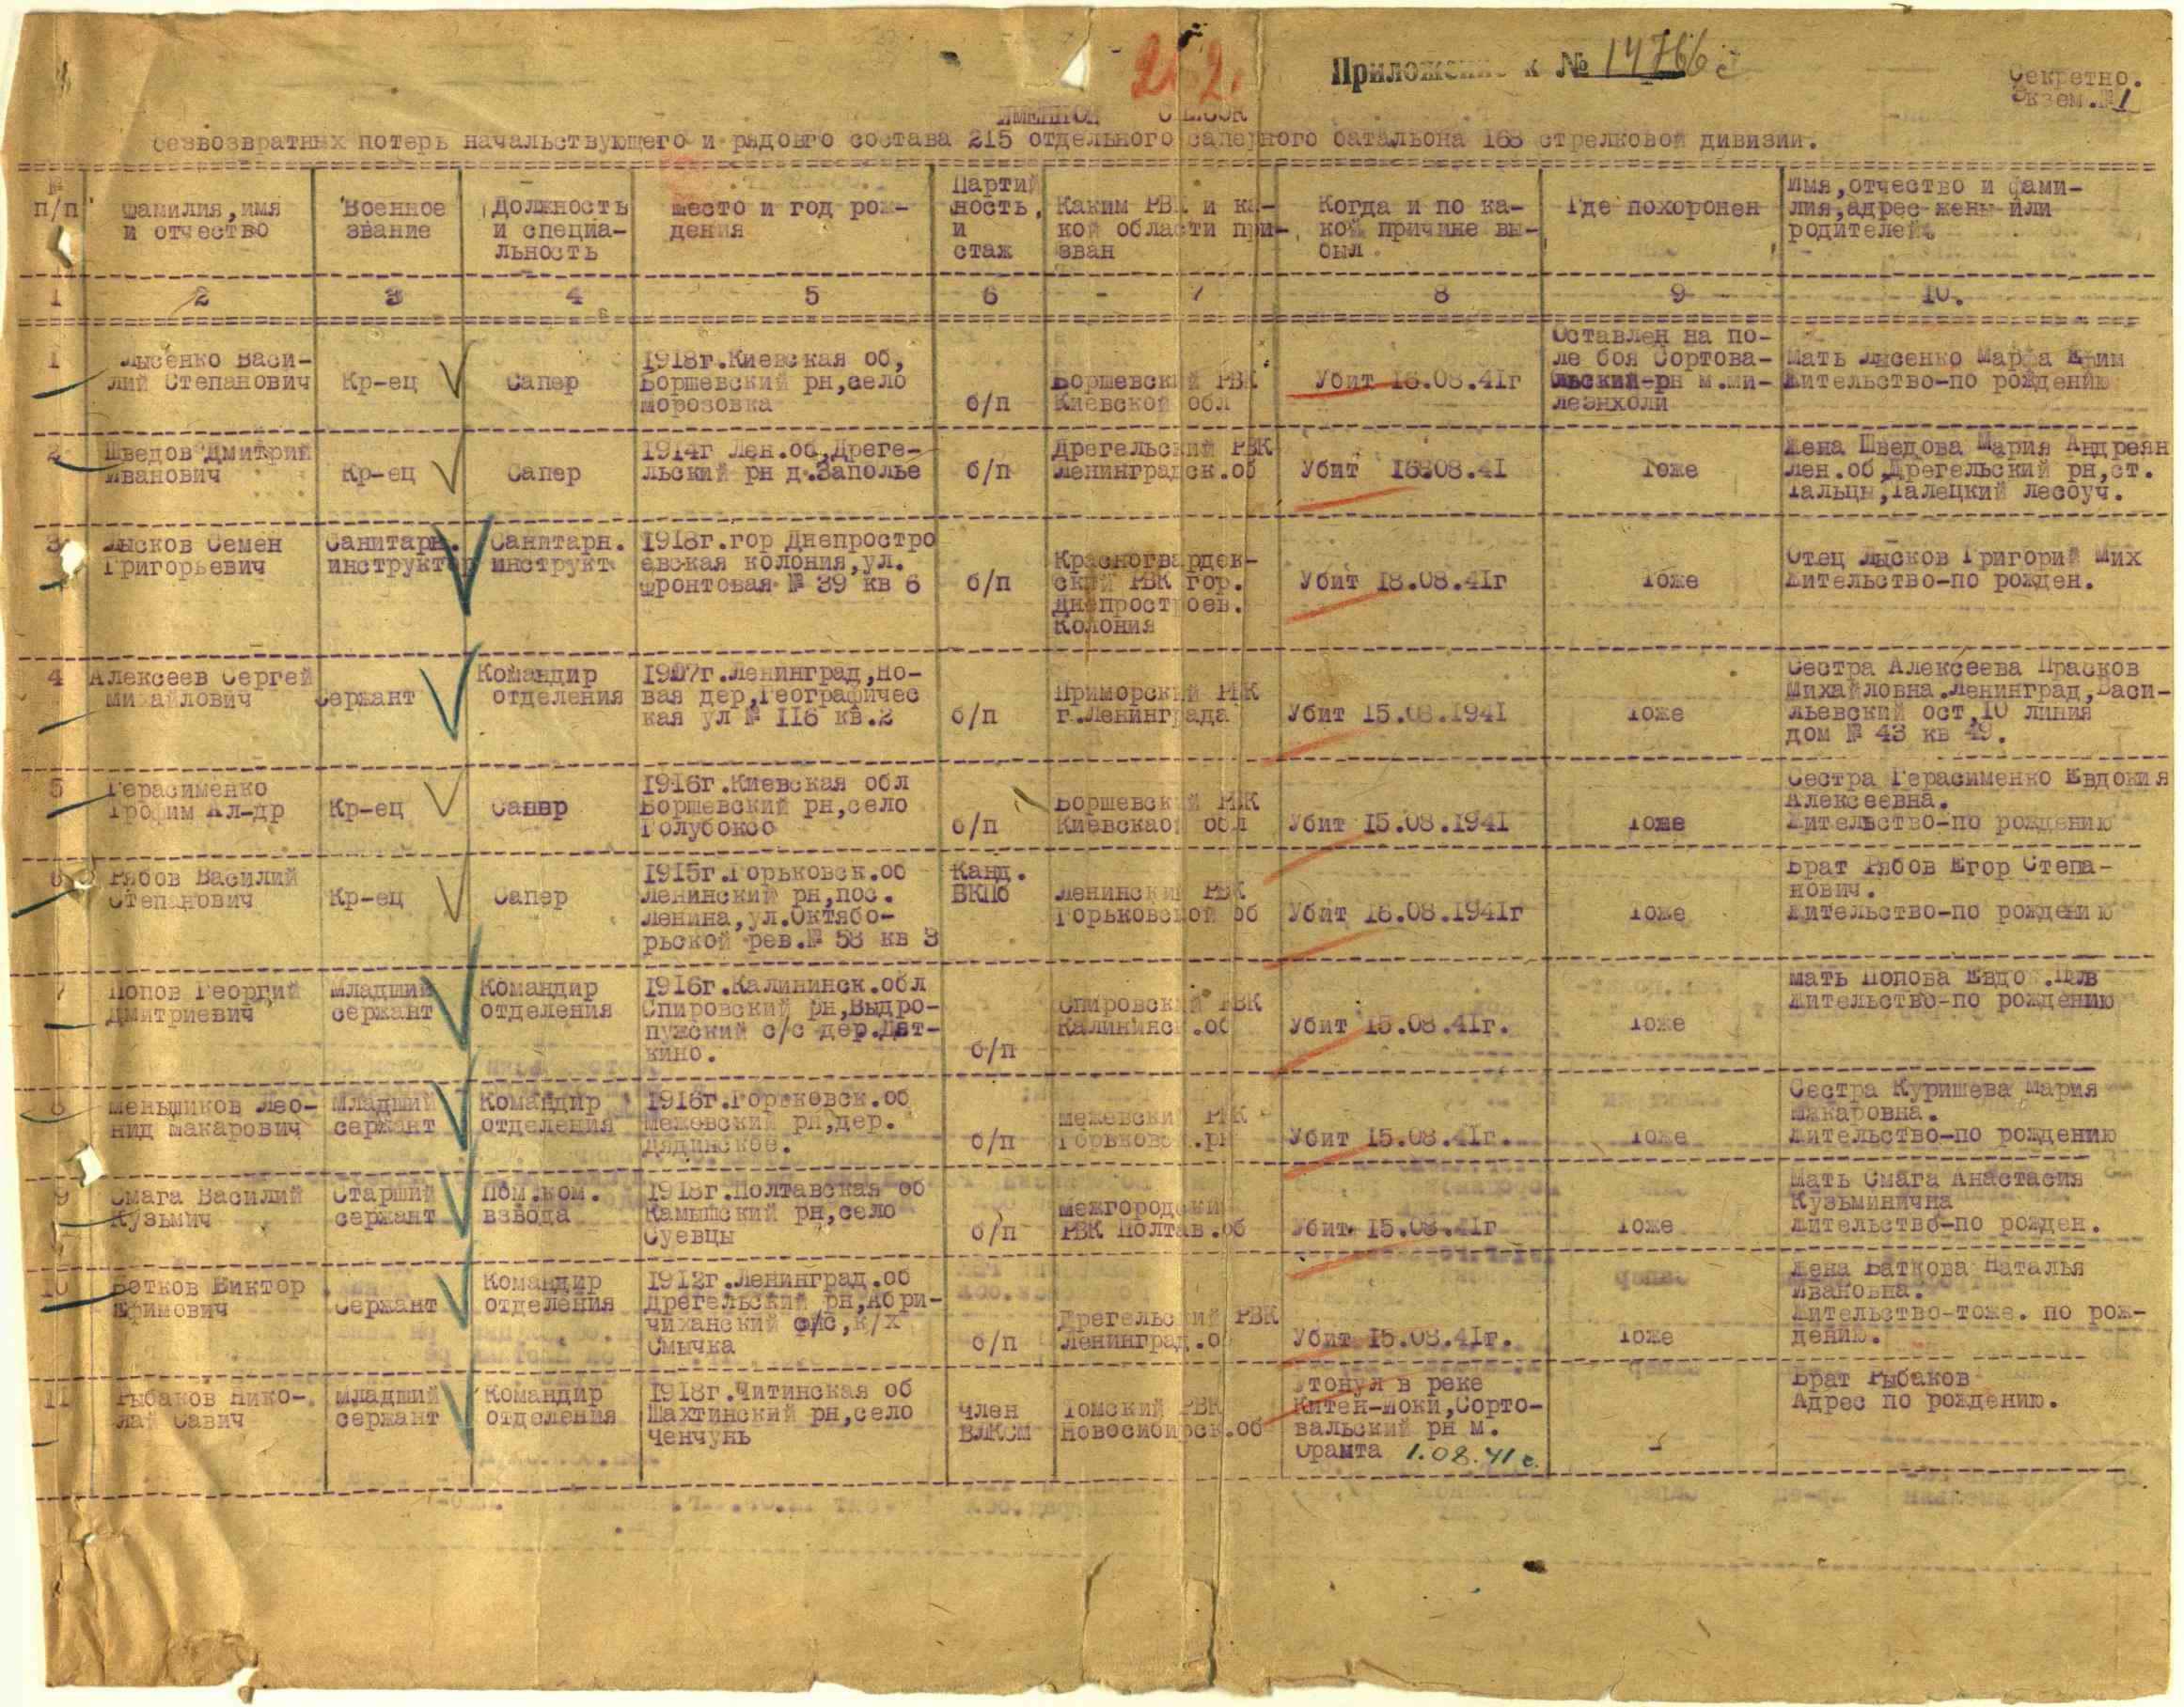 Приложение к № 14766с
Секретно.
Экзем.№1
2 2.
ИМЕННОЙ СПИСОК
безвозвратных потерь начальствующего и рядовго состава 215 отдельного саперного батальона 168 стрелковой дивизии.
№ п/п
Фамилия,имя
и отчество
Военное
звание
Должность
и специа-
льность
Место и год рож-
дения
Партий
ность,
и
стаж
Каким РВК и ка-
кой области при-
зван
Когда и по ка-
кой причине вы-
был.
Где похоронен
Имя,отчество и фами-
лия,адрес жены или
родителей.
1 2 3 4 5 6 7 8 9 10.
1
Лысенко Васи-
лий Степанович
Кр-ец
Сапер
1918г.Киевская об,
Борщевский рн,село
Морозовка
б/п
Борщевский РВК
Киевской обл
Убит 16.08.41г
Оставлен на по-
ле боя Сортова-
льский-рн м.ми-
леэнхоли
Мать Лысенко Марфа Ефим
Жительство-по рождению
2
Шведов Дмитрий
Иванович
Кр-ец
Сапер
1914г Лен.об,Дреге-
льский рн д.Заполье
б/п
Дрегельский РВК
Ленинградск.об
Убит 16.08.41
Тоже
Жена Шведова Мария Андреян
Лен.об,Дрегельский рн,ст.
Тальцы,Талецкий лесоуч.
3
Лысков Семен
Григорьевич
Санитарн.
инструктор
Санитарн.
инструкт.
1918г.гор Днепростро
евская колония,ул.
Фронтовая № 39 кв 6
б/п
Красногвардек-
ский РВК гор.
Днепростроев.
Колония
Убит 18.08.41г
Тоже
Отец Лысков Григорий Мих
Жительство-по рожден.
4
Алексеев Сергей
Михайлович
Сержант
Командир
отделения
1917г.Ленинград,Но-
вая дер,Географичес
кая ул № 116 кв.2
б/п
Приморский РВК
г.Ленинграда
Убит 15.08.1941
Тоже
Сестра Алексеева Прасков
Михайловна.Ленинград,Васи-
льевский ост,10 линия
дом № 43 кв 49.
5
Герасименко
Трофим Ал-др
Кр-ец
Сапер
1916г.Киевская обл
Борщевский рн,село
Голубоксо
б/п
Борщевский РВК
Киевскаой обл
Убит 15.08.1941
Тоже
Сестра Герасименко Евдокия
Алексеевна.
Жительство-по рождению
6
Рябов Василий
Степанович
Кр-ец
Сапер
1915г.Горьковск.об
Ленинский рн,пос.
Ленина,ул.Октябо-
рьской рев.№ 58 кв 3
Канд.
ВКПб
Ленинский РВК
Горьковской об
Убит 16.08.1941г
Тоже
Брат Рябов Егор Степа-
нович.
Жительство-по рождению
7
Попов Георгий
Дмитриевич
Младший
сержант
Командир
отделения
1916г.Калининск.обл
Спировский рн,Выдро-
пужский с/с дер.Дят-
кино.
б/п
Спировский РВК
Калининс .об
Убит 15.08.41г.
Тоже
Мать Попова Евдо .
Жительство-по рождению
8
Меньшиков Лео-
нид Макарович
Младший
сержант
Командир
отделения
1916г.Горьковск.об
Межевский рн,дер.
Дядинское.
б/п
Межевски РВК
Горьковс .рн
Убит 15.08.41г.
Тоже
Сестра Куришева Мария
Макаровна.
Жительство-по рождению
9
Смага Василий
Кузьмич
Старший
сержант
Пом.ком.
взвода
1918г.Полтавская об
Камышский рн,село
Суевцы
б/п
Межгородский
РВК Полтав.об
Убит 15.08.41г
Тоже
Мать Смага Анастасия
Кузьминична
Жительство-по рожден.
10
Вотков Виктор
Ефимович
Сержант
Командир
отделения
1912г.Ленинград.об
Дрегельский рн,Абри-
чиханский с/с,к/х
Смычка
б/п
Дрегельский РВК
Ленинград.об
Убит 15.08.41г.
Тоже
Жена Баткова Наталья
Ивановна.
Жительство-тоже. по рож-
дению.
11
Рыбаков Нико-
лай Савич
Младший
сержант
Командир
отделения
1918г.Читинская об
Шахтинский рн,село
Ченчунь
член
ВЛКСМ
Томский РВК
Новосибирск.об
Утонул в реке
Китен-Йоки,Сорто-
вальский рн м.
Орамта 1.08.41г.
-
Брат Рыбаков
Адрес по рождению.